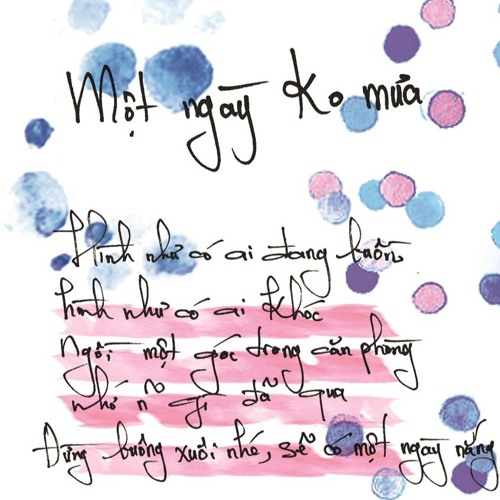 Một ngày Ko mưa
Hình như có ai đang buồn
hình như có ai khóc
Ngồi một góc trong căn phòng
nhớ n~ gì đã qua
Đừng buông xuôi nhé, sẽ có một ngày nắng